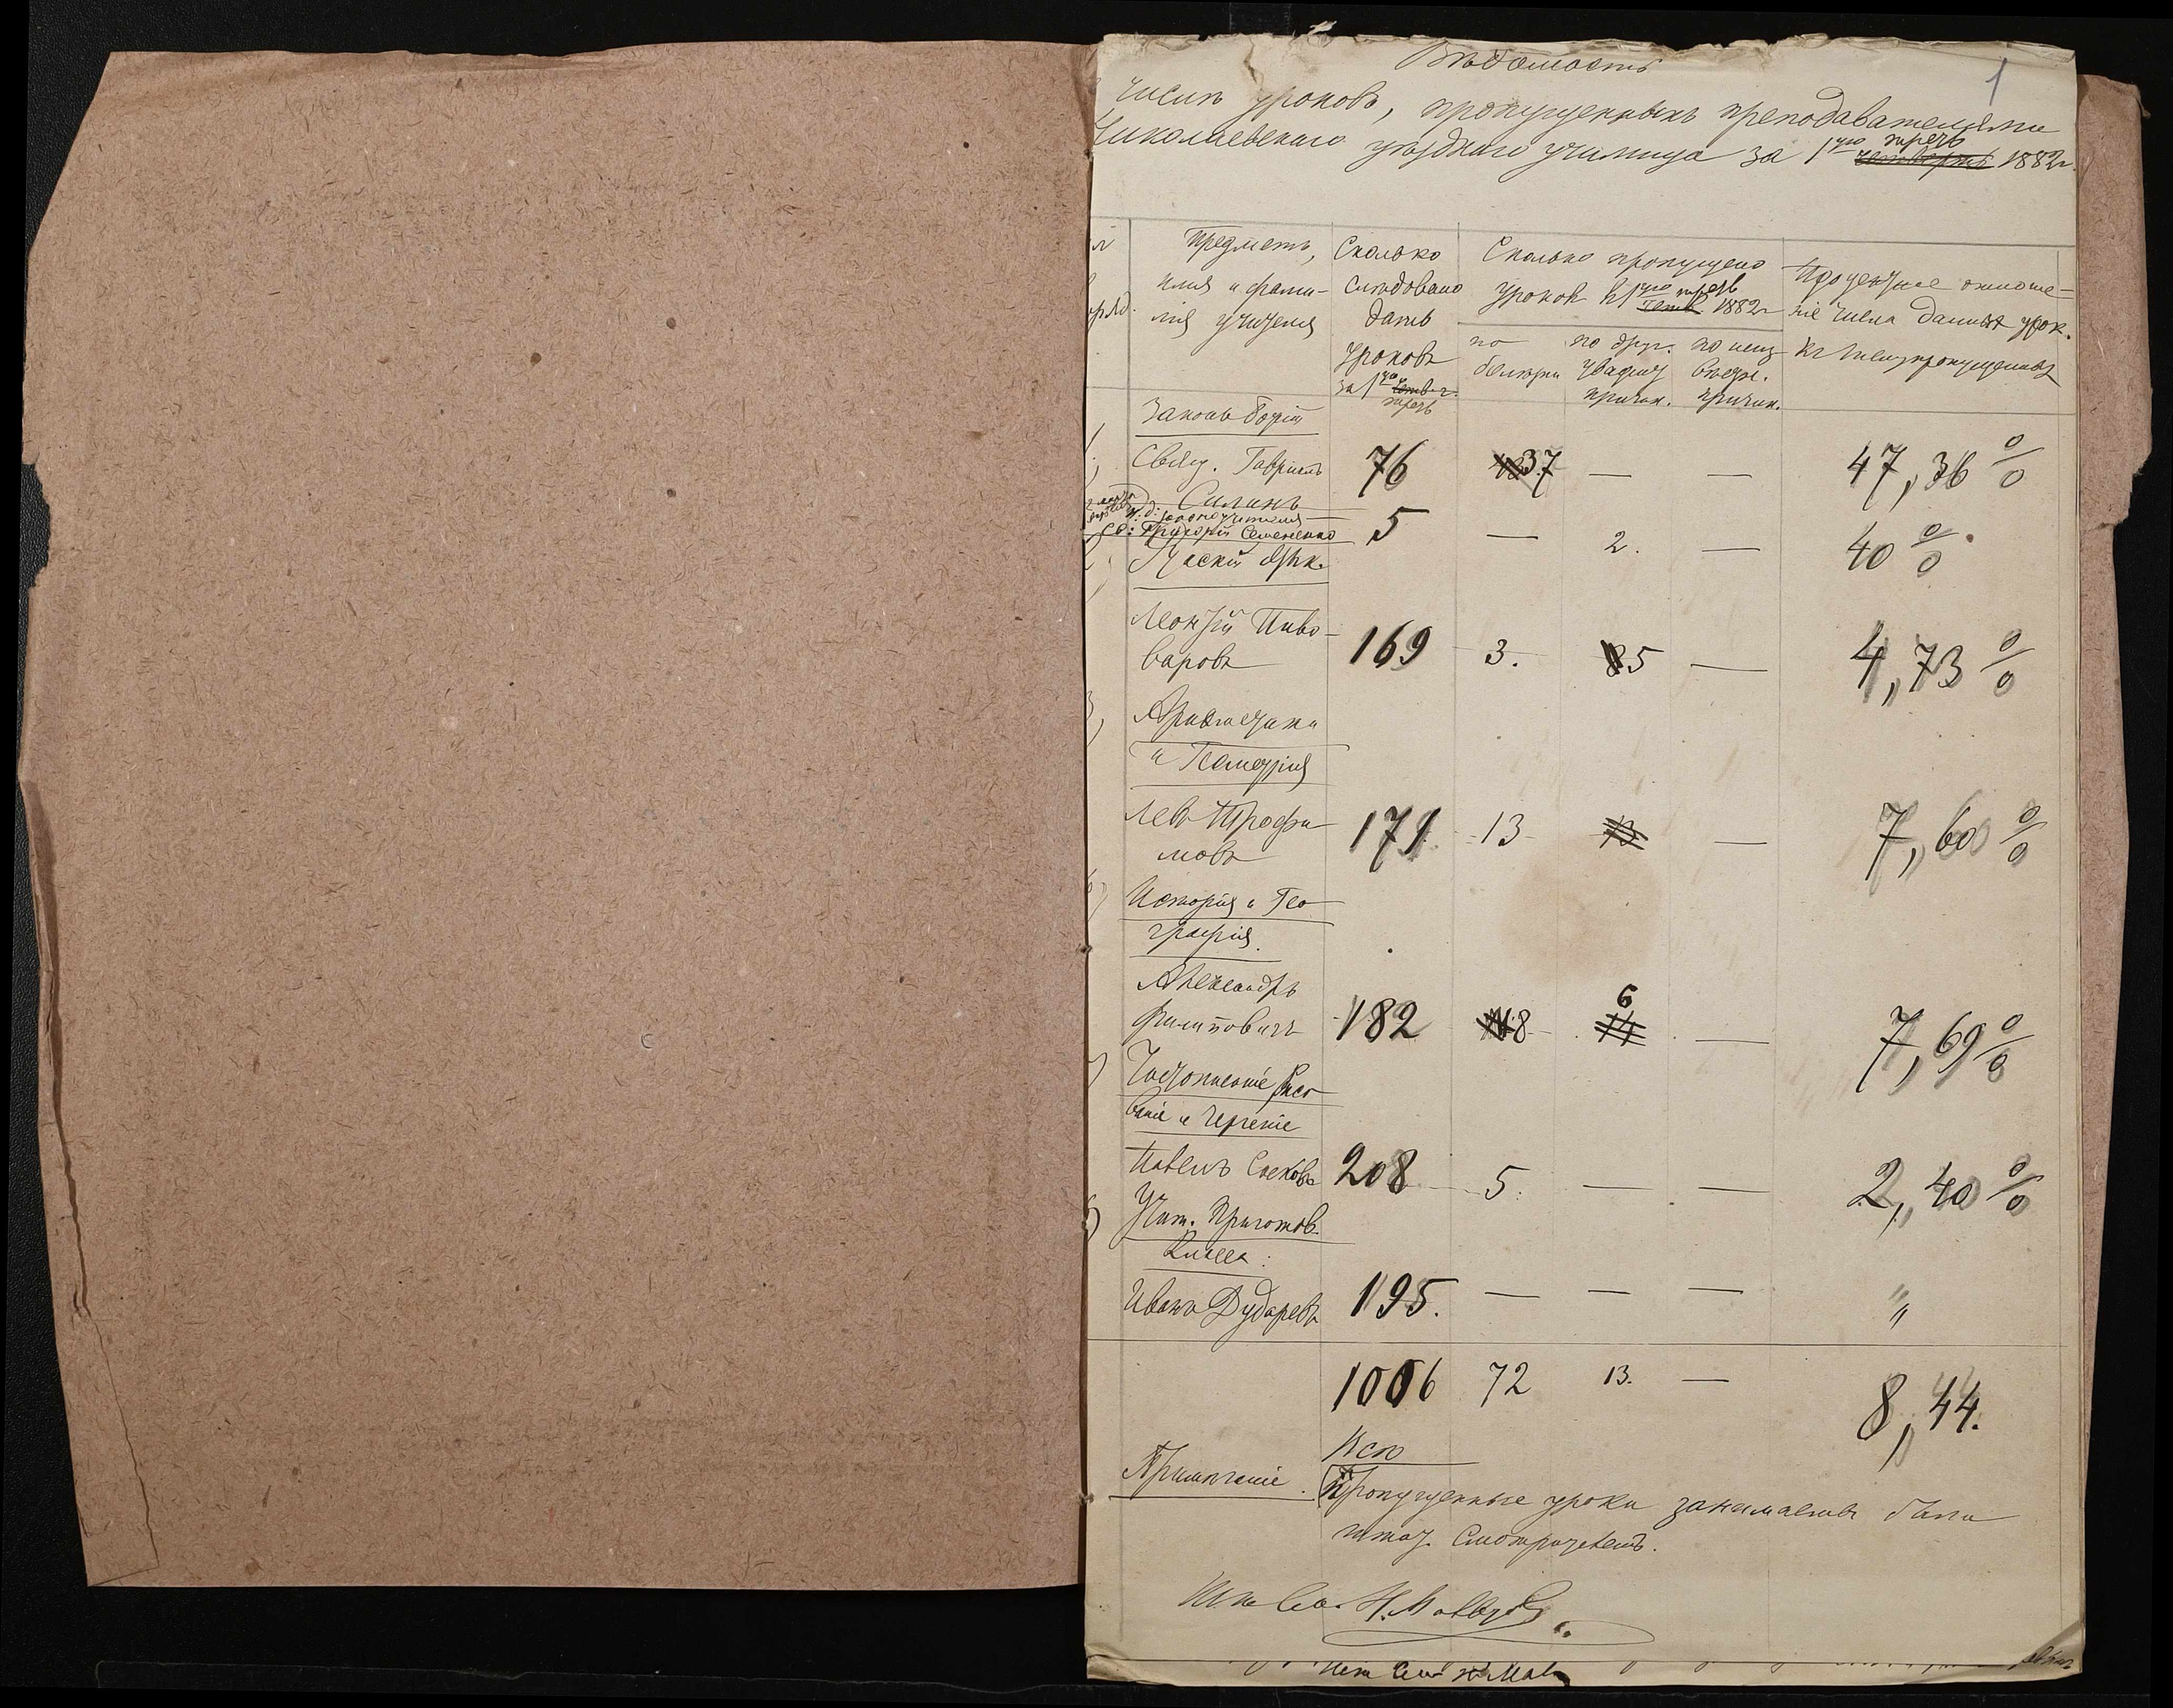 1
Вѣдомость
числѣ уроковъ, пропущенныхъ преподавателями
Николаевскаго уѣзднаго училища за 1ую треть 1882г.
Предметъ,
имя и фами-
лія учителя
Сколько
слѣдовало
дать
уроковъ
за 1ую
треть
Сколько пропущено
уроковъ въ 1ую треть 1882г
по
болѣзни
по друг.
уважит
причин.
по неиз
вѣстн.
причин.
Процентное отноше-
ніе числа данныхъ урок.
къ числу пропущенныхъ
Законъ Божій
Свящ. Гавріилъ 76 37 — — 47,36 %
Силинъ
и. д. законоучителя
Св: Григорій Семененко 5 — 2. — 40 %
Русскій язык.
Леонтій Пиво-
варовъ 169 3. 5 — 4,73 %
Ариөметика
и Геометрія
Левъ Трофи
мовъ 171. 13 — 7,60 %
Исторія и Гео
графія.
Александръ
Филиповичъ 182 8 6 — 7,69 %
Чистописаніе Рисо
ваніе и черченіе
Павелъ 208 5. — — 2,40 %
Учит. Приготов.
Класса:
Иванъ Дударевъ 195. — — — "
1006 72 13. — 8,44.
Примѣчаніе.
Пропущенные уроки занимаемы были
штат. Смотрителемъ.